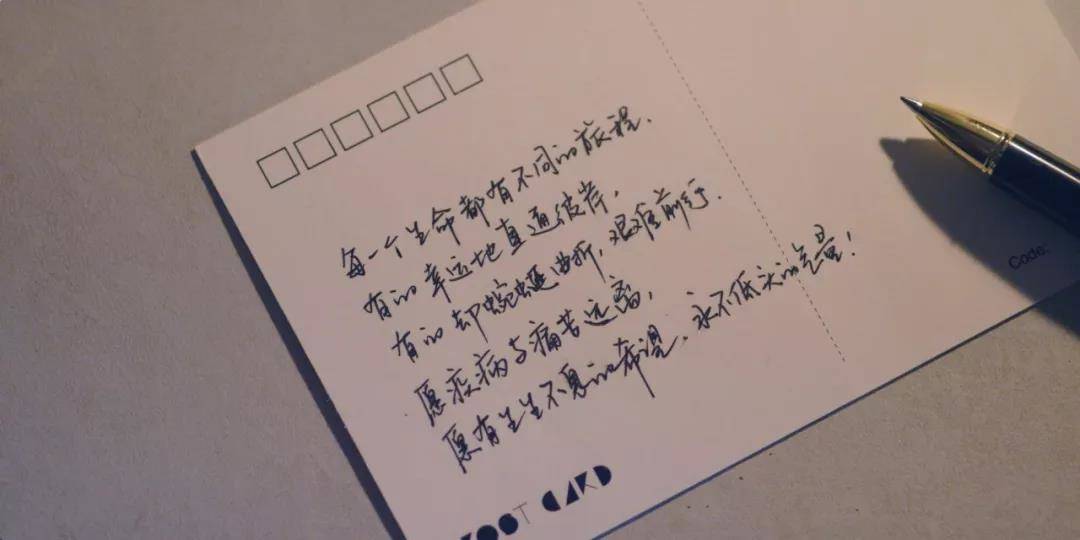 每一个生命都有不同的旅程.
有的幸运地直通彼岸,
有的却蜿蜒曲折,艰难前行.
愿疫病与痛苦远离,
愿有生生不息的希望,永不低头的气量!
Code:
POST CARD